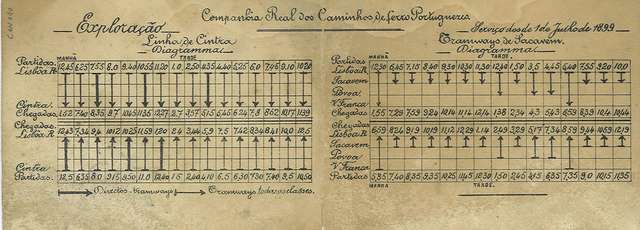 Companhia Real dos Caminhos de ferro Portuguezes
Exploração
Serviço desde 1 de Julho de 1899
Linha de Cintra
Diagramma
MANHÃ
TARDE
Partidas
Lisboa R. 12.45 6.25 7.55 8.0 9.40 10.55 11.20 1.0 2.50 4.40 5.25 6.0 7.45 9.10 10.20
Cintra
Chegadas 1.52 7.40 8.35 9.7 10.45 11.36 12.27 2.7 3.57 5.15 5.45 6.24 7.8 8.62 10.17 11.39
Chegadas
Lisboa R. 12.43 7.32 9.4 10.12 10.25 11.59 1.20 2.4 3.44 5.9 7.5 7.42 8.34 8.41 10.0 12.5
Cintra
Partidas 12.5 6.35 8.0 9.5 9.50 11.0 12.40 1.5 2.40 4.10 6.5 6.30 7.30 7.40 9.5 10.50
MANHÃ
TARDE
Directos tramways
Tramways todas as classes.
Tramways de Sacavem
Diagramma
Partidas
Lisboa R. 12.30 6.45 7.15 8.40 9.30 10.30 11.30 12.40 1.50 3.5 4.45 6.40 7.55 9.20 10.0
MANHÃ
TARDE
Sacavem
Povoa
V. Franca
Chegadas 1.55 7.29 7.59 9.24 10.14 11.14 12.14 1.38 2.34 4.3 5.43 8.39 10.4 10.44
Chegadas
Lisboa R. 6.59 8.24 9.19 10.19 11.12 12.29 1.14 2.49 3.29 5.17 7.34 8.59 9.44 10.59 12.19
Sacavem
Povoa
V. Franca
Partidas 5.35 7.40 8.35 9.35 10.25 11.45 12.30 1.50 2.45 6.15 7.35 9.0 10.15 11.35
MANHÃ
TARDE